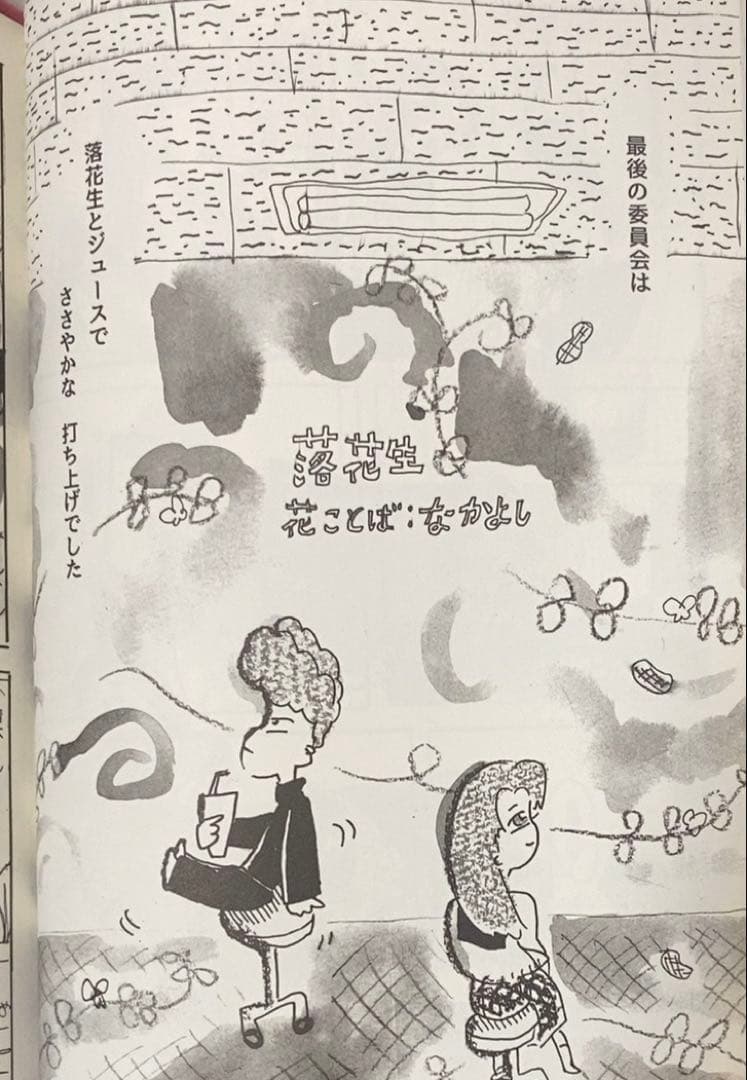 最後の委員会は
落花生とジュースで
ささやかな 打ち上げでした
落花生
花ことば：なかよし